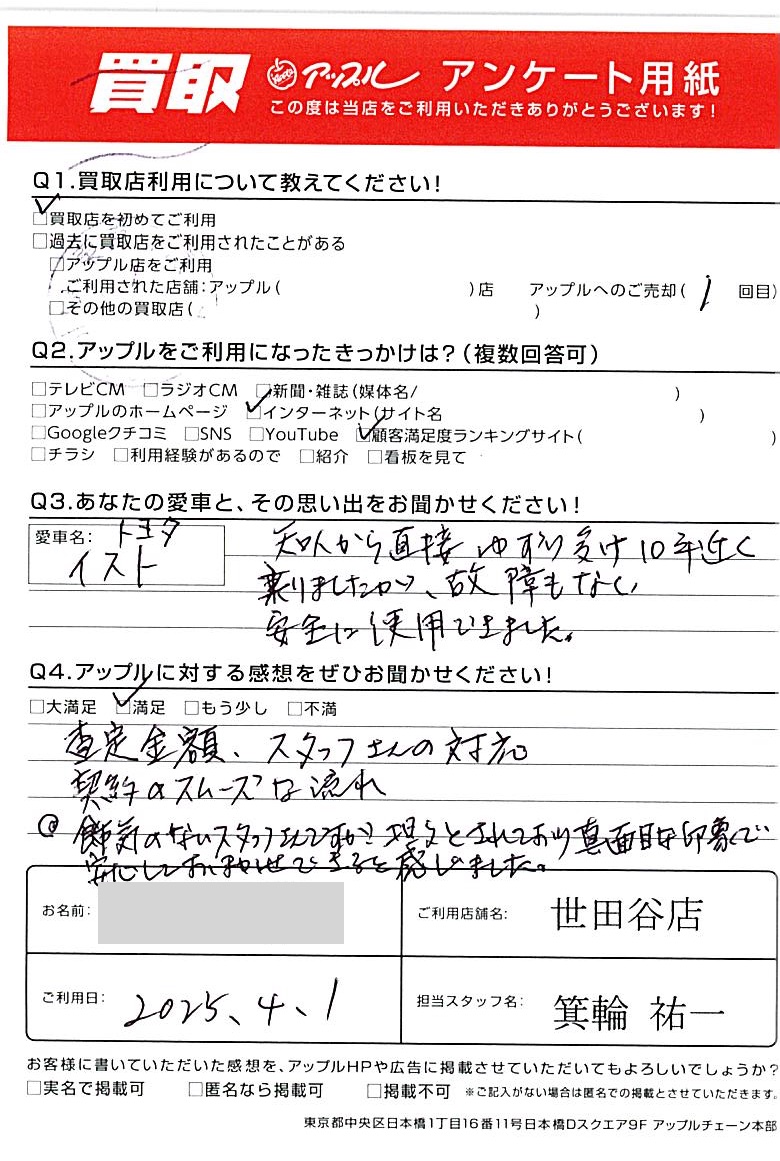 買取 Apple アップル アンケート用紙
この度は当店をご利用いただきありがとうございます!
Q1.買取店利用について教えてください!
☑買取店を初めてご利用
□過去に買取店をご利用されたことがある
□アップル店をご利用
ご利用された店舗:アップル( )店 アップルへのご売却( 1 回目)
□その他の買取店( )
Q2.アップルをご利用になったきっかけは?(複数回答可)
□テレビCM □ラジオCM □新聞・雑誌(媒体名/ )
□アップルのホームページ ☑インターネット(サイト名 )
□Googleクチコミ □SNS □YouTube ☑顧客満足度ランキングサイト( )
□チラシ □利用経験があるので □紹介 □看板を見て
Q3.あなたの愛車と、その思い出をお聞かせください!
愛車名: トヨタ
イスト
知人から直接ゆずり受け10年近く
乗りましたが、故障もなく
安全に使用できました。
Q4.アップルに対する感想をぜひお聞かせください!
□大満足 ☑満足 □もう少し □不満
査定金額、スタッフさんの対応
契約のスムーズな流れ
飾気のないスタッフさんですが? 坦々とされており真面目な印象で
安心しておまかせできると感じました。
お名前:
ご利用店舗名: 世田谷店
ご利用日: 2025、4、1
担当スタッフ名: 箕輪 祐一
お客様に書いていただいた感想を、アップルHPや広告に掲載させていただいてもよろしいでしょうか?
□実名で掲載可 □匿名なら掲載可 □掲載不可 ※ご記入がない場合は匿名での掲載とさせていただきます。
東京都中央区日本橋1丁目16番11号日本橋Dスクエア9F アップルチェーン本部